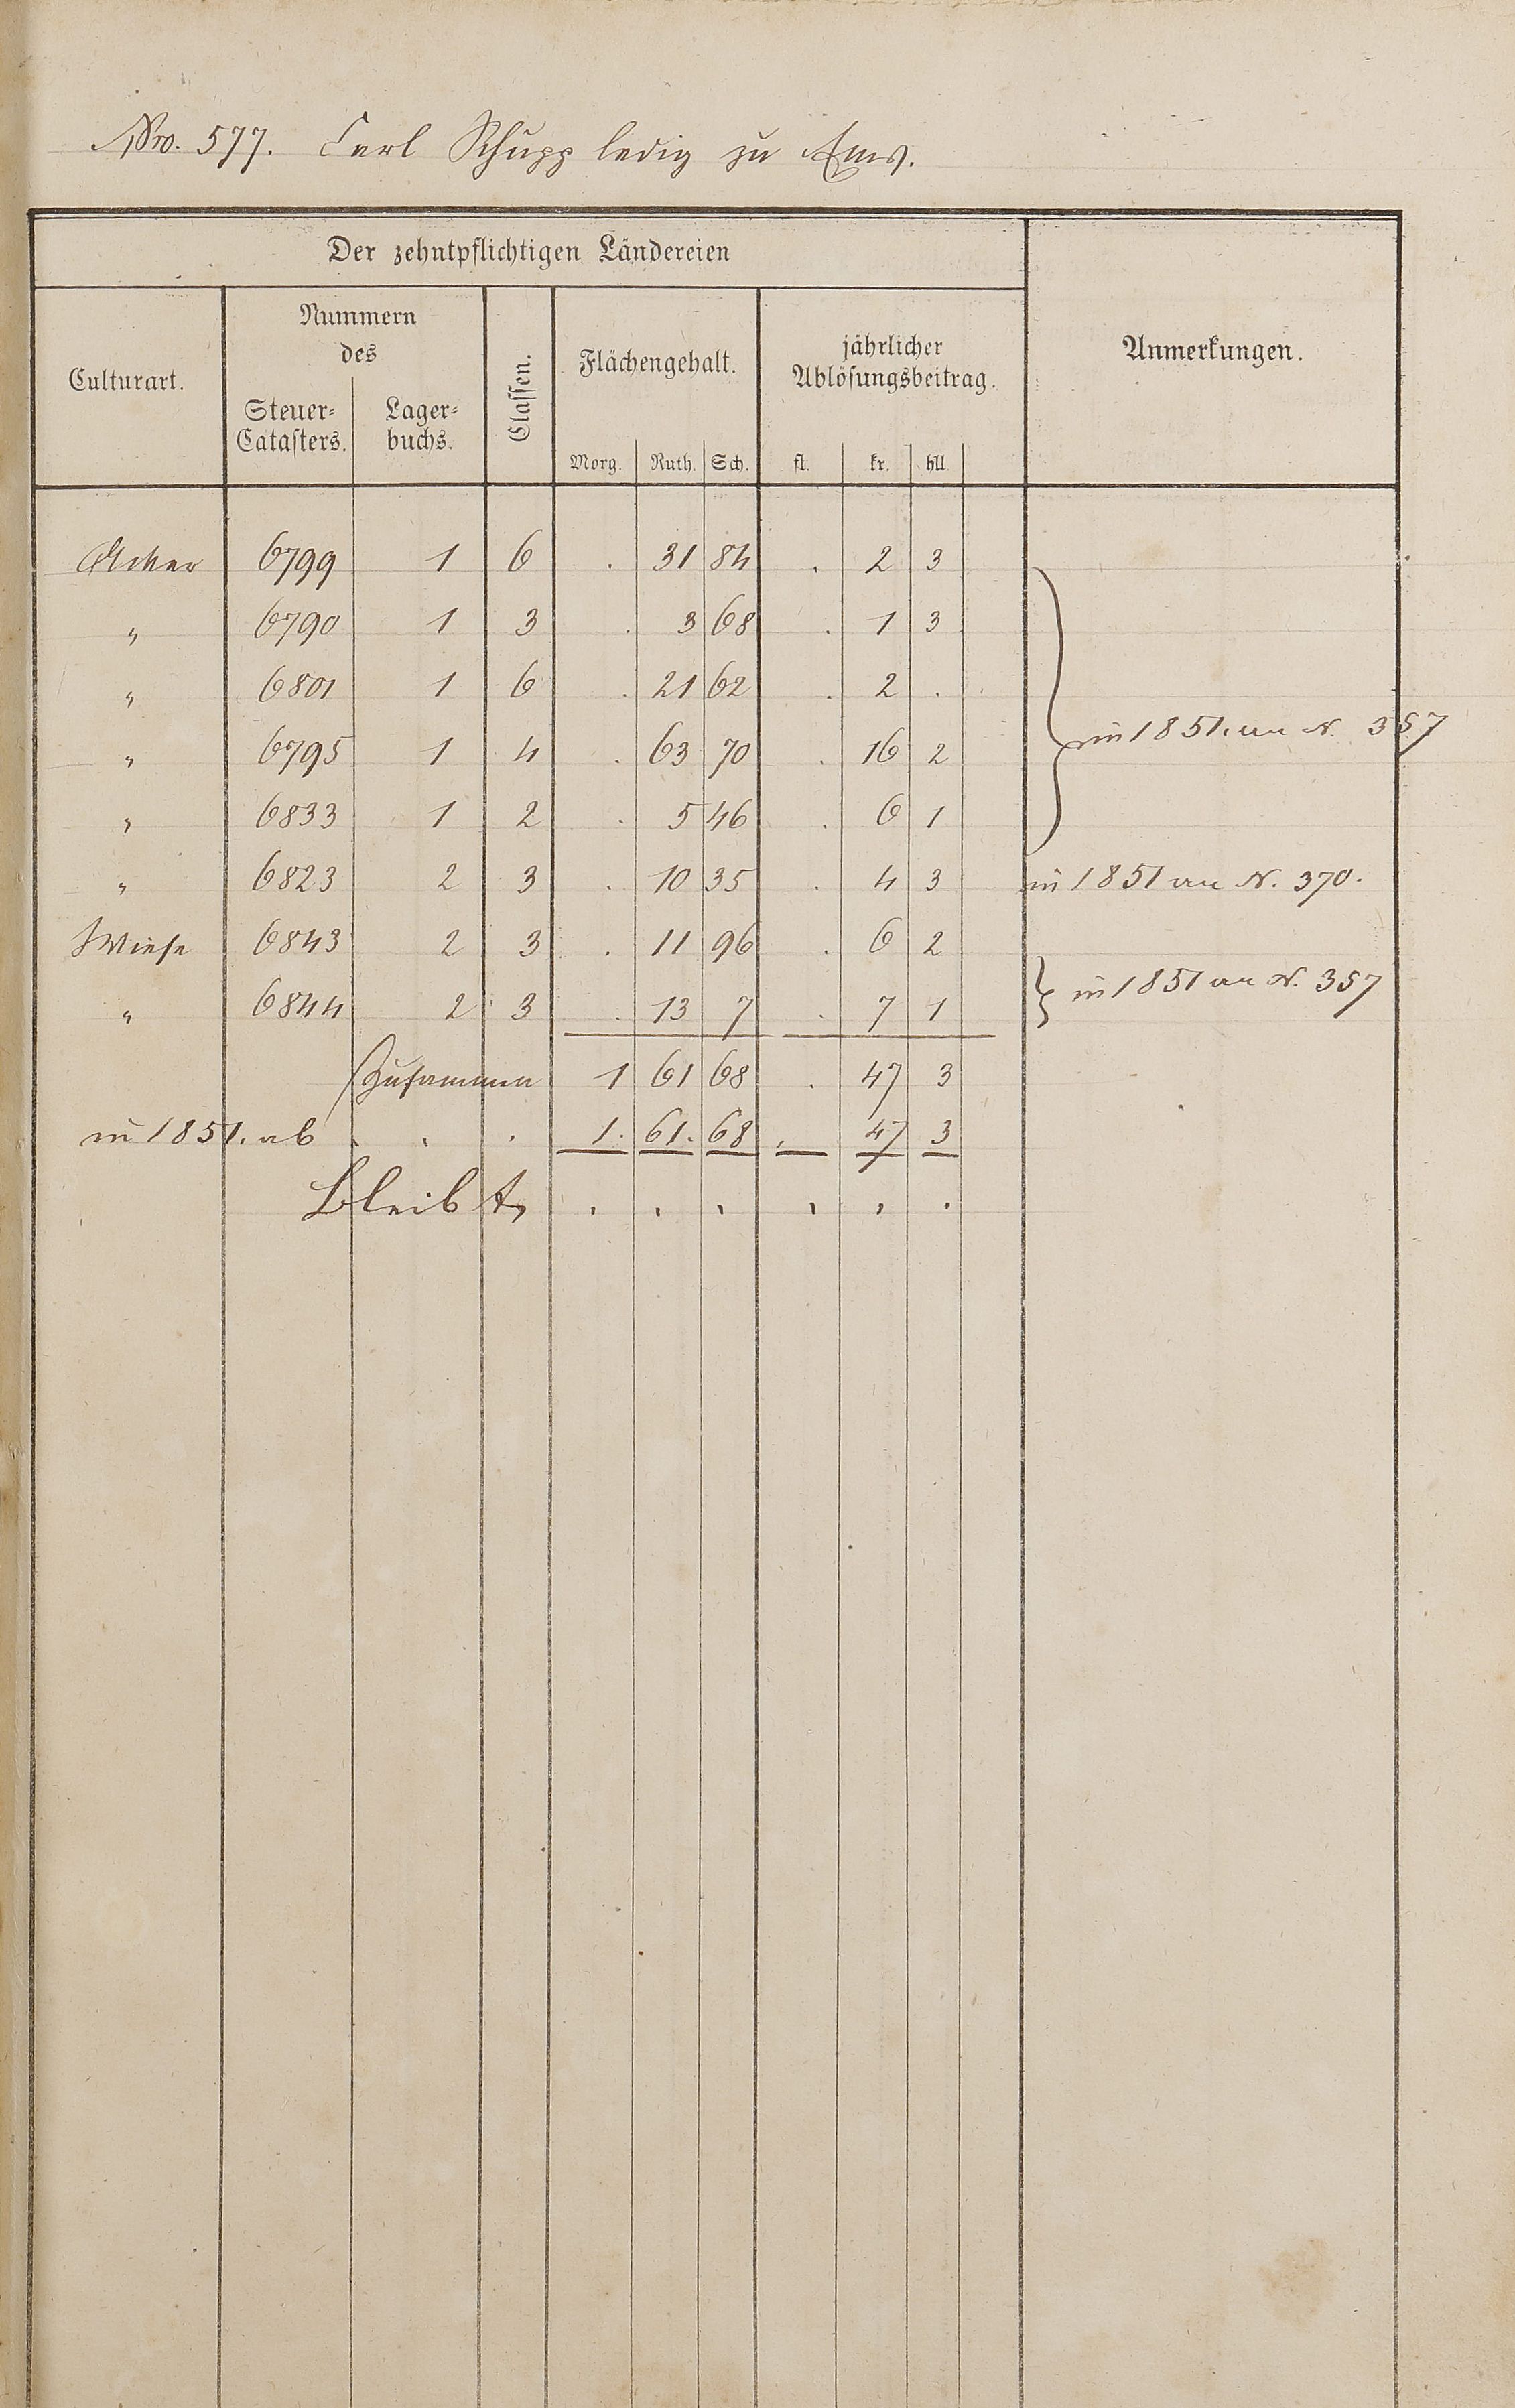 Nro. 577. Carl Schupp ledig zu Ems.
Der zehntpflichtigen Ländereien
Culturart.
Nummern
des
Steuer-
Catasters.
Lager-
buchs.
Classen.
Flächengehalt.
Morg. Ruth. Sch.
jährlicher
Ablösungsbeitrag.
fl. kr. hll.
Anmerkungen.
Acker 6799 1 6 . 31 84 . 2 3
" 6790 1 3 . 3 68 . 1 3
" 6801 1 6 . 21 62 . 2 .
" 6795 1 4 . 63 70 . 16 2 in 1851. an N. 357
" 6833 1 2 . 5 46 . 6 1
" 6823 2 3 . 10 35 . 4 3 in 1851 an N. 370.
Wiese 6843 2 3 . 11 96 . 6 2
" 6844 2 3 . 13 7 . 7 1 in 1851 an N. 357
Zusammen 1 61 68 . 47 3
in 1851. ab . . . 1. 61. 68 . 47 3
Bleibt, . . . . . .